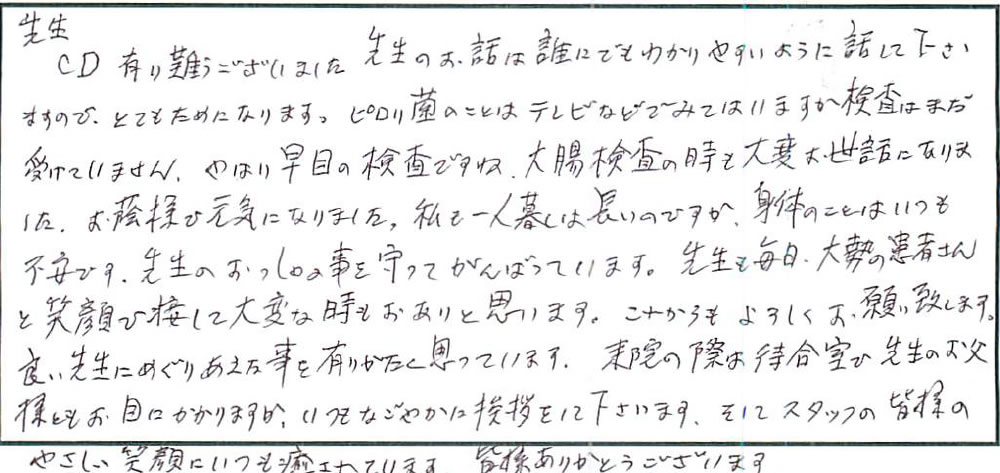 先生
CD有り難うございました 先生のお話は誰にでもわかりやすいように話して下さい
ますので、とてもためになります。ピロリ菌のことはテレビなどでみてはいますが検査はまだ
受けていません、やはり早目の検査ですね、大腸検査の時も大変お世話になりま
した、お蔭様で元気になりました。私も一人暮しは長いのですが、身体のことはいつも
不安です、先生のおっしゃる事を守ってがんばっています。先生も毎日、大勢の患者さん
と笑顔で接して大変な時もおありと思います。これからもよろしくお願い致します。
良い先生にめぐりあえた事を有りがたく思っています、来院の際は待合室で先生のお父
様ともお目にかかりますが、いつもなごやかに挨拶をして下さいます、そしてスタッフの皆様の
やさしい笑顔にいつも癒されています 皆様ありがとうございます